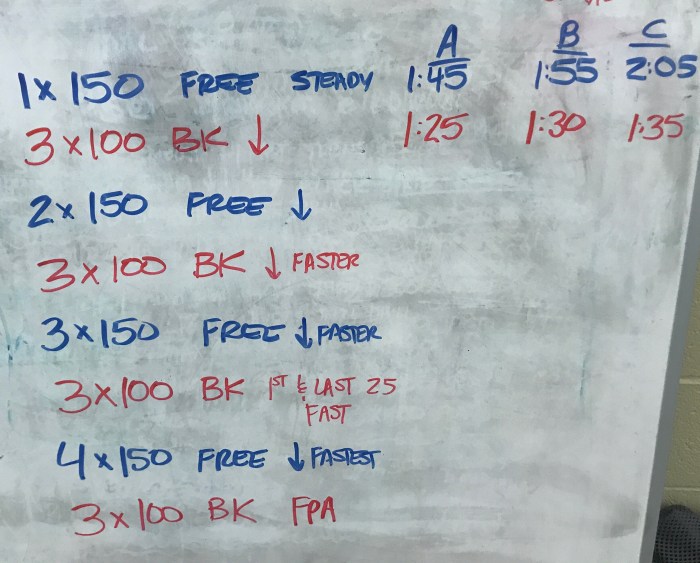 A B C
1 x 150 FREE STEADY 1:45 1:55 2:05
3 x 100 BK ↓ 1:25 1:30 1:35
2 x 150 FREE ↓
3 x 100 BK ↓ FASTER
3 x 150 FREE ↓ FASTER
3 x 100 BK 1ST & LAST 25
FAST
4 x 150 FREE ↓ FASTEST
3 x 100 BK FPA